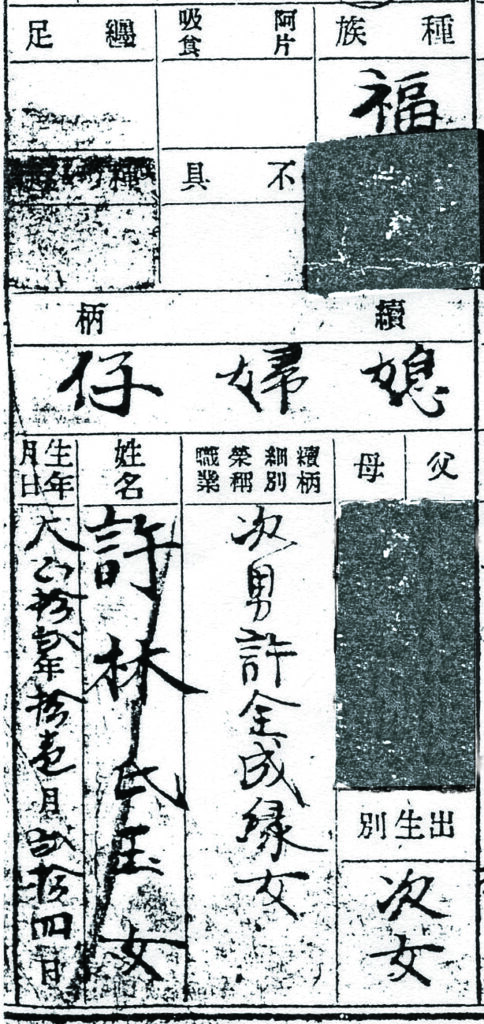 種族
福
阿片
吸食
不具
纏足
種痘
續柄
媳婦仔
父
母
出生別
次女
續柄
細別
榮稱
職業
次男許全成緣女
姓名
許林氏玉女
生年
月日
大正拾貳年拾壹月貳拾四日